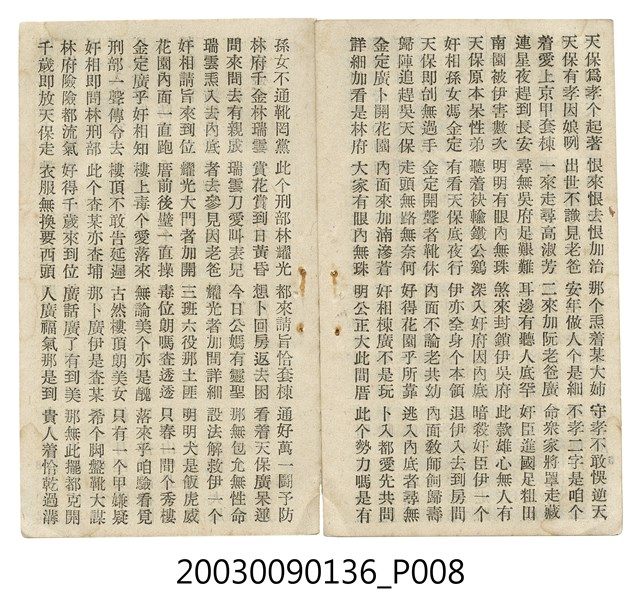 天保爲孝个起著 恨來恨去恨加治 那个焄着某大姉 守孝不敢悞逆天
天保有孝因娘咧 出世不識見老爸 安年做人个是細 不孝二字是咱个
着愛上京甲套棟 一來走尋高淑芳 二來加阮老爸廣 命衆家將罩走藏
連星夜趕到長安 尋無吳府足艱難 耳邊有聽人底罕 奸臣進國足粗田
南園被伊害數次 明明有眼內無珠 煞來封鎖伊吳府 此款雄心無人有
天保原本呆性弟 聽着袂輸鐵公鷄 深入奸府因內底 暗殺奸臣伊一个
奸相孫女馮金定 有看天保底夜行 伊亦全身个本領 退伊入去到房間
天保即刣無過手 金定開聲者靴休 內面不論老共幼 內面教師飼歸壽
歸陣追趕吳天保 走頭無路無奈何 好得花園乎所靠 逃入內底者尋無
金定廣卜開花園 內面來加湳滲着 奸相棟廣不是玩 卜入都愛先共問
詳細加看是林府 大家有眼內無珠 明公正大此間厝 此个勢力嗎是有
孫女不通靴罔黨 此个刑部林耀光 都來請旨恰套棟 通好萬一鬪予防
林府千金林瑞雲 賞花賞到日黃昏 想卜回房返去困 看着天保廣呆運
問來問去有親戚 瑞雲刀愛叫表兄 今日公媽有靈聖 那無包允無性命
瑞雲焄入去內底 者去參見因老爸 耀光者加問詳細 設法解救伊一个
奸相請旨來到位 耀光大門者加開 三班六役那土匪 明明犬是飯虎威
花園內面一直跑 厝前後壁一直操 毒位朗嗎查透透 只春一間个秀樓
金定廣乎奸相知 樓上毒个愛落來 無論美个亦是醜 落來乎咱驗看覓
刑部一聲傳令去 樓頂不敢告延遲 古然樓頂朗美女 只有一个甲嫌疑
奸相即問林刑部 此个查某亦查埔 那卜廣伊是查某 希个脚盤靴大謀
林府險險都流氣 好得千歲來到位 廣話廣了有到美 那無此擺都克開
千歲即放天保走 衣服無換要西頭 人廣福氣那是到 貴人着恰乾過溝
20030090136_P008